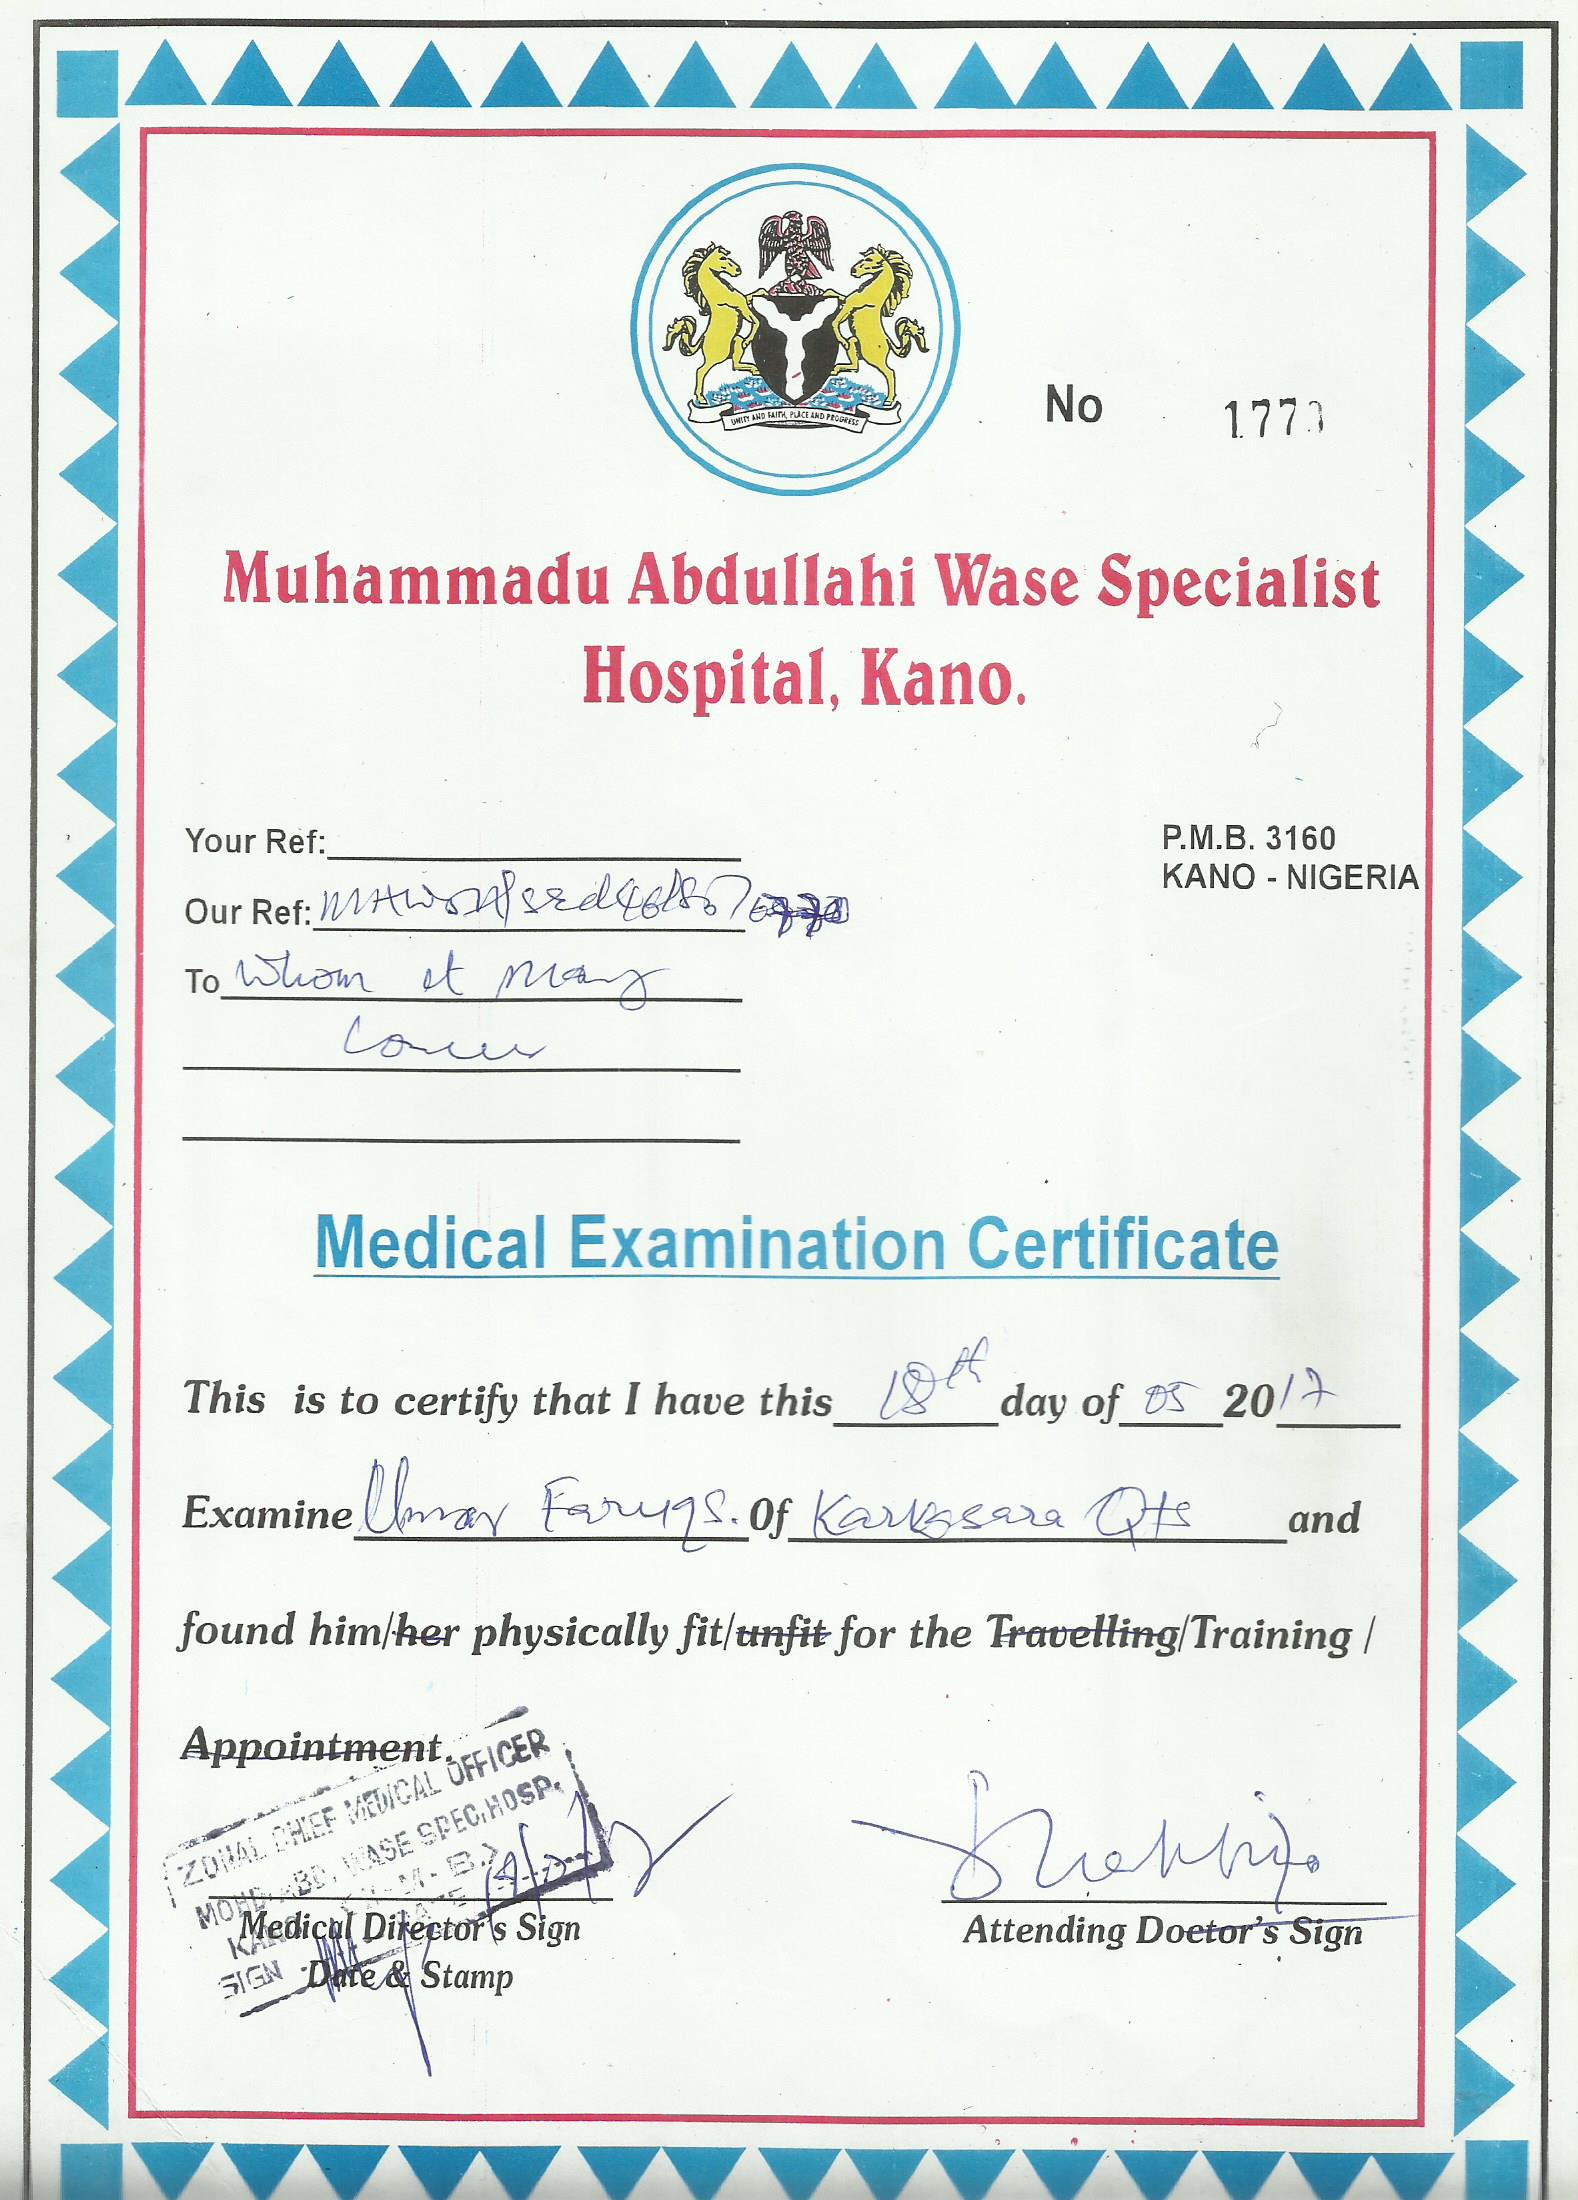 UNITY AND FAITH, PLACE AND PROGRESS
No 177
Muhammadu Abdullahi Wase Specialist
Hospital, Kano.
Your Ref:
P.M.B. 3160
KANO - NIGERIA
Our Ref:
To Whom it May
Concern
Medical Examination Certificate
This is to certify that I have this 18th day of 05 2017
Examine Umar Faruq S. Of Karkasara Qts and
found him/her physically fit/unfit for the Travelling/Training /
Appointment.
ZONAL CHIEF MEDICAL OFFICER
MOHD. ABD. WASE SPEC. HOSP.
KANO
DATE
SIGN
Medical Director's Sign
Date & Stamp
Attending Doctor's Sign